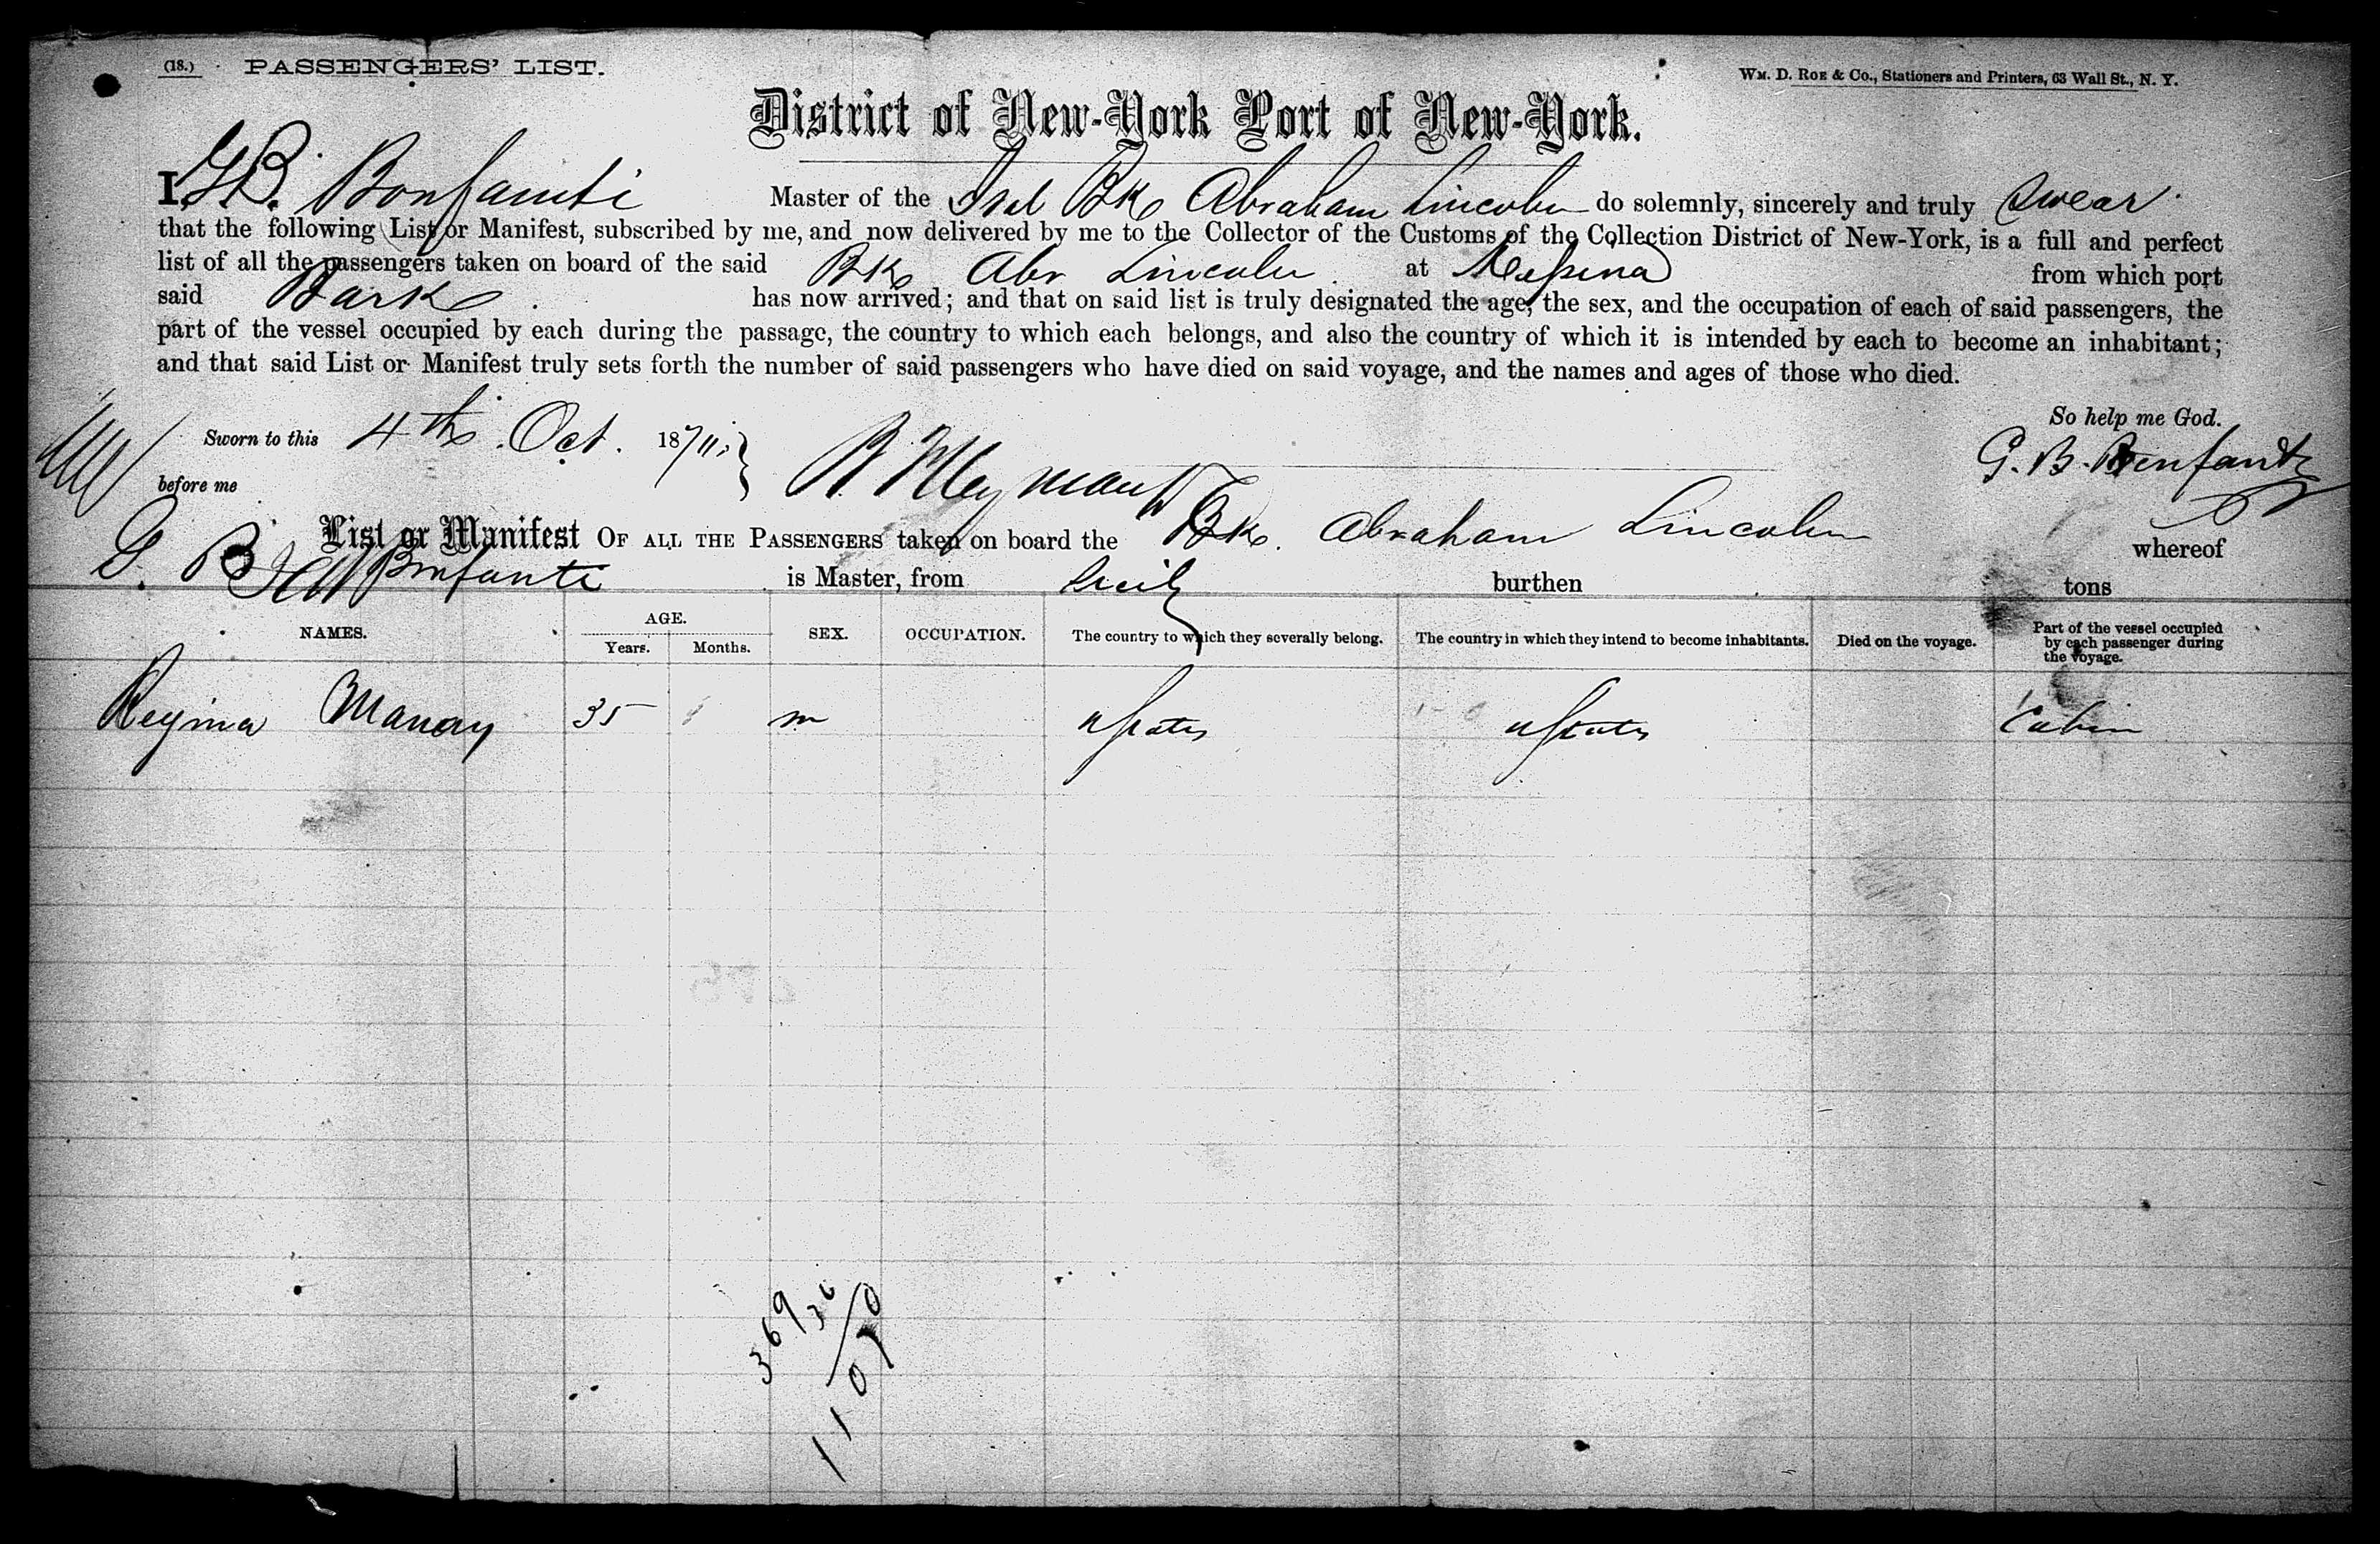 (18.) PASSENGERS' LIST.
WM. D. ROE & CO., Stationers and Printers, 63 Wall St., N. Y.
District of New-York Port of New-York.
I G B. Bonfanti Master of the Bk Abraham Lincoln do solemnly, sincerely and truly swear
that the following List or Manifest, subscribed by me, and now delivered by me to the Collector of the Customs of the Collection District of New-York, is a full and perfect
list of all the passengers taken on board of the said Bk Abr Lincoln at Messina from which port
said Bark has now arrived; and that on said list is truly designated the age, the sex, and the occupation of each of said passengers, the
part of the vessel occupied by each during the passage, the country to which each belongs, and also the country of which it is intended by each to become an inhabitant;
and that said List or Manifest truly sets forth the number of said passengers who have died on said voyage, and the names and ages of those who died.
So help me God.
Sworn to this 4th Oct. 187
G. B. Bonfanti
before me
List or Manifest OF ALL THE PASSENGERS taken on board the Bk. Abraham Lincoln whereof
G. B Bonfanti is Master, from Sicily burthen tons
NAMES. AGE. Years. Months. SEX. OCCUPATION. The country to which they severally belong. The country in which they intend to become inhabitants. Died on the voyage. Part of the vessel occupied by each passenger during the voyage.
Regina 35 m UStates UStates Cabin
369
30
11070